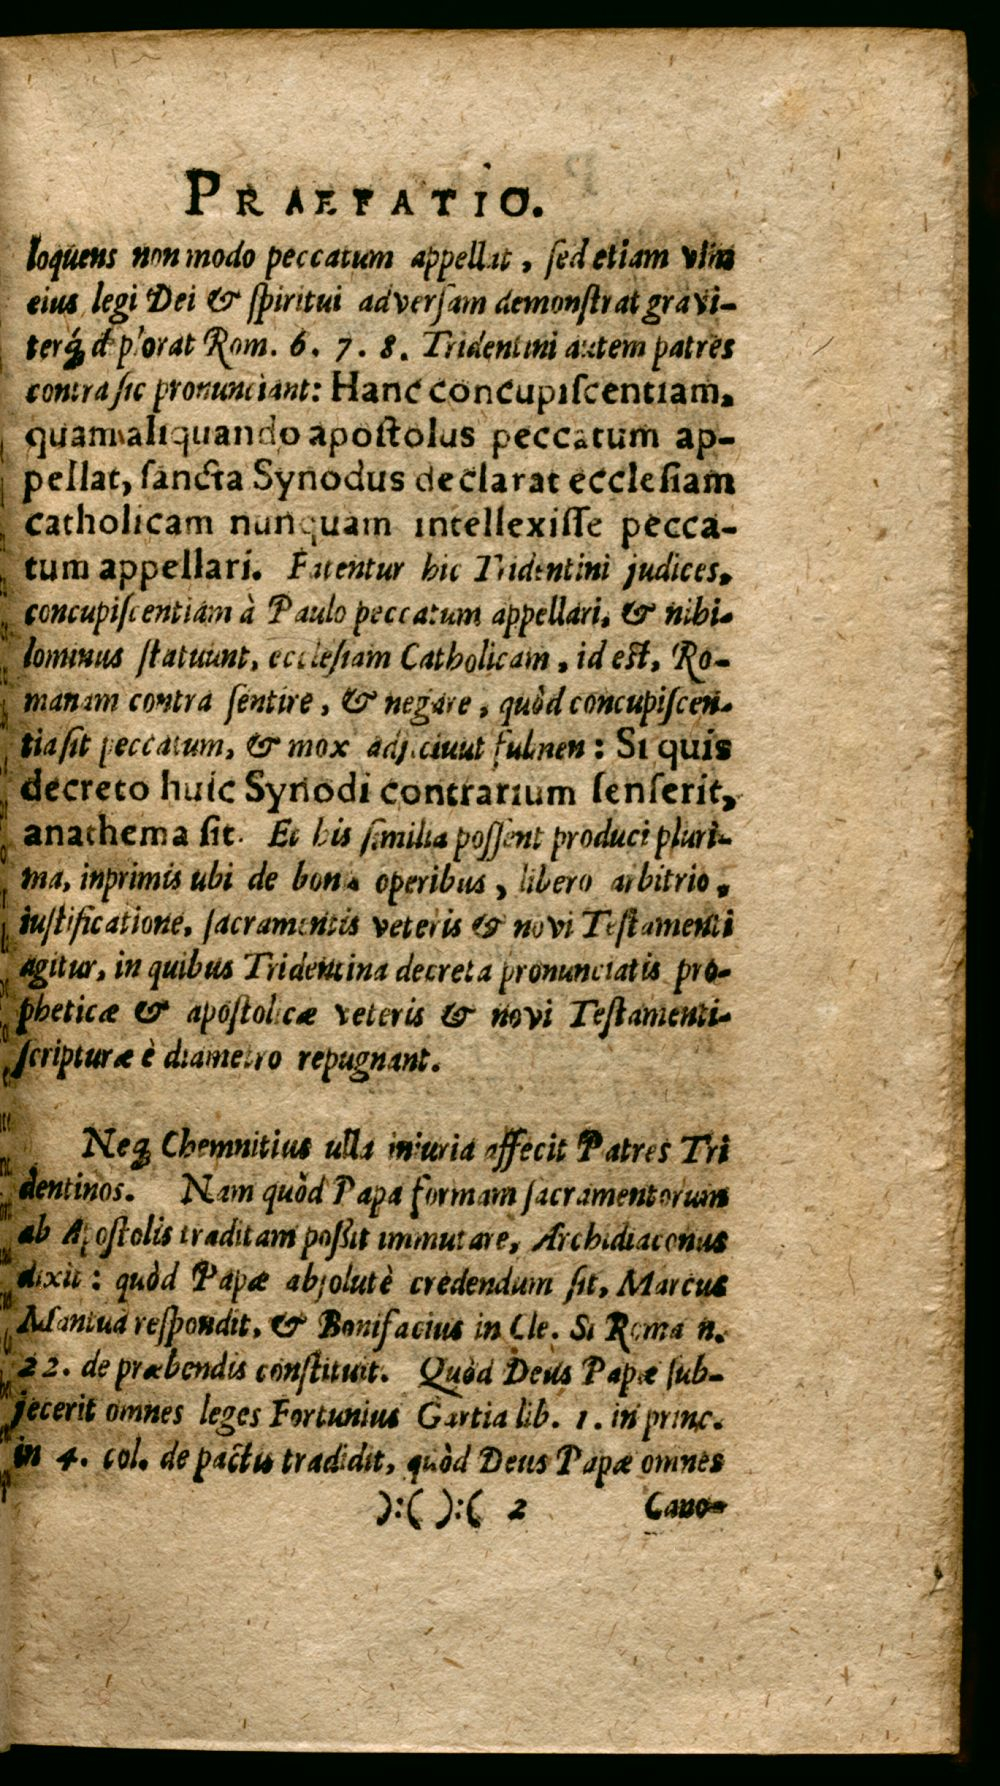 PRAEFATIO.
loquens non modo peccatum appellat, ſed etiam vim
eius legi Dei & ſpiritui adverſam demonſtrat gravi-
terq́ꝫ deplorat Rom. 6. 7. 8. Tridentini autem patres
contra ſic pronunciant: Hanc concupiſcentiam,
quam aliquando apoſtolus peccatum ap-
pellat, ſancta Synodus declarat eccleſiam
catholicam nunquam intellexiſſe pecca-
tum appellari. Fatentur hic Tridentini judices,
concupiſcentiam à Paulo peccatum appellari, & nihi-
lominus ſtatuunt, eccleſiam Catholicam, id eſt, Ro-
manam contra ſentire, & negare, quòd concupiſcen-
tia ſit peccatum, & mox adjiciuut fulmen: Si quis
decreto huic Synodi contrarium ſenſerit,
anathema ſit. Et his ſimilia poſſent produci pluri-
ma, inprimis ubi de bonis operibus, libero arbitrio,
iuſtificatione, ſacramentis veteris & novi Teſtamenti
agitur, in quibus Tridentina decreta pronunciatis pro-
pheticæ & apoſtolicæ veteris & novi Teſtamenti-
ſcripturæ è diametro repugnant.
Neqꝫ Chemnitius ulla iniuria affecit Patres Tri
dentinos. Nam quòd Papa formam ſacramentorum
ab Apoſtolis traditam poßit immutare, Archidiaconus
dixit: quòd Papæ abſolutè credendum ſit, Marcus
Mantua reſpondit, & Bonifacius in Cle. Si Roma n.
22. de præbendis conſtituit. Quòd Deus Papæ ſub-
jecerit omnes leges Fortunius Gartia lib. 1. in princ.
in 4. col. de pactis tradidit, quòd Deus Papæ omnes
):( ):( 2 Cano-